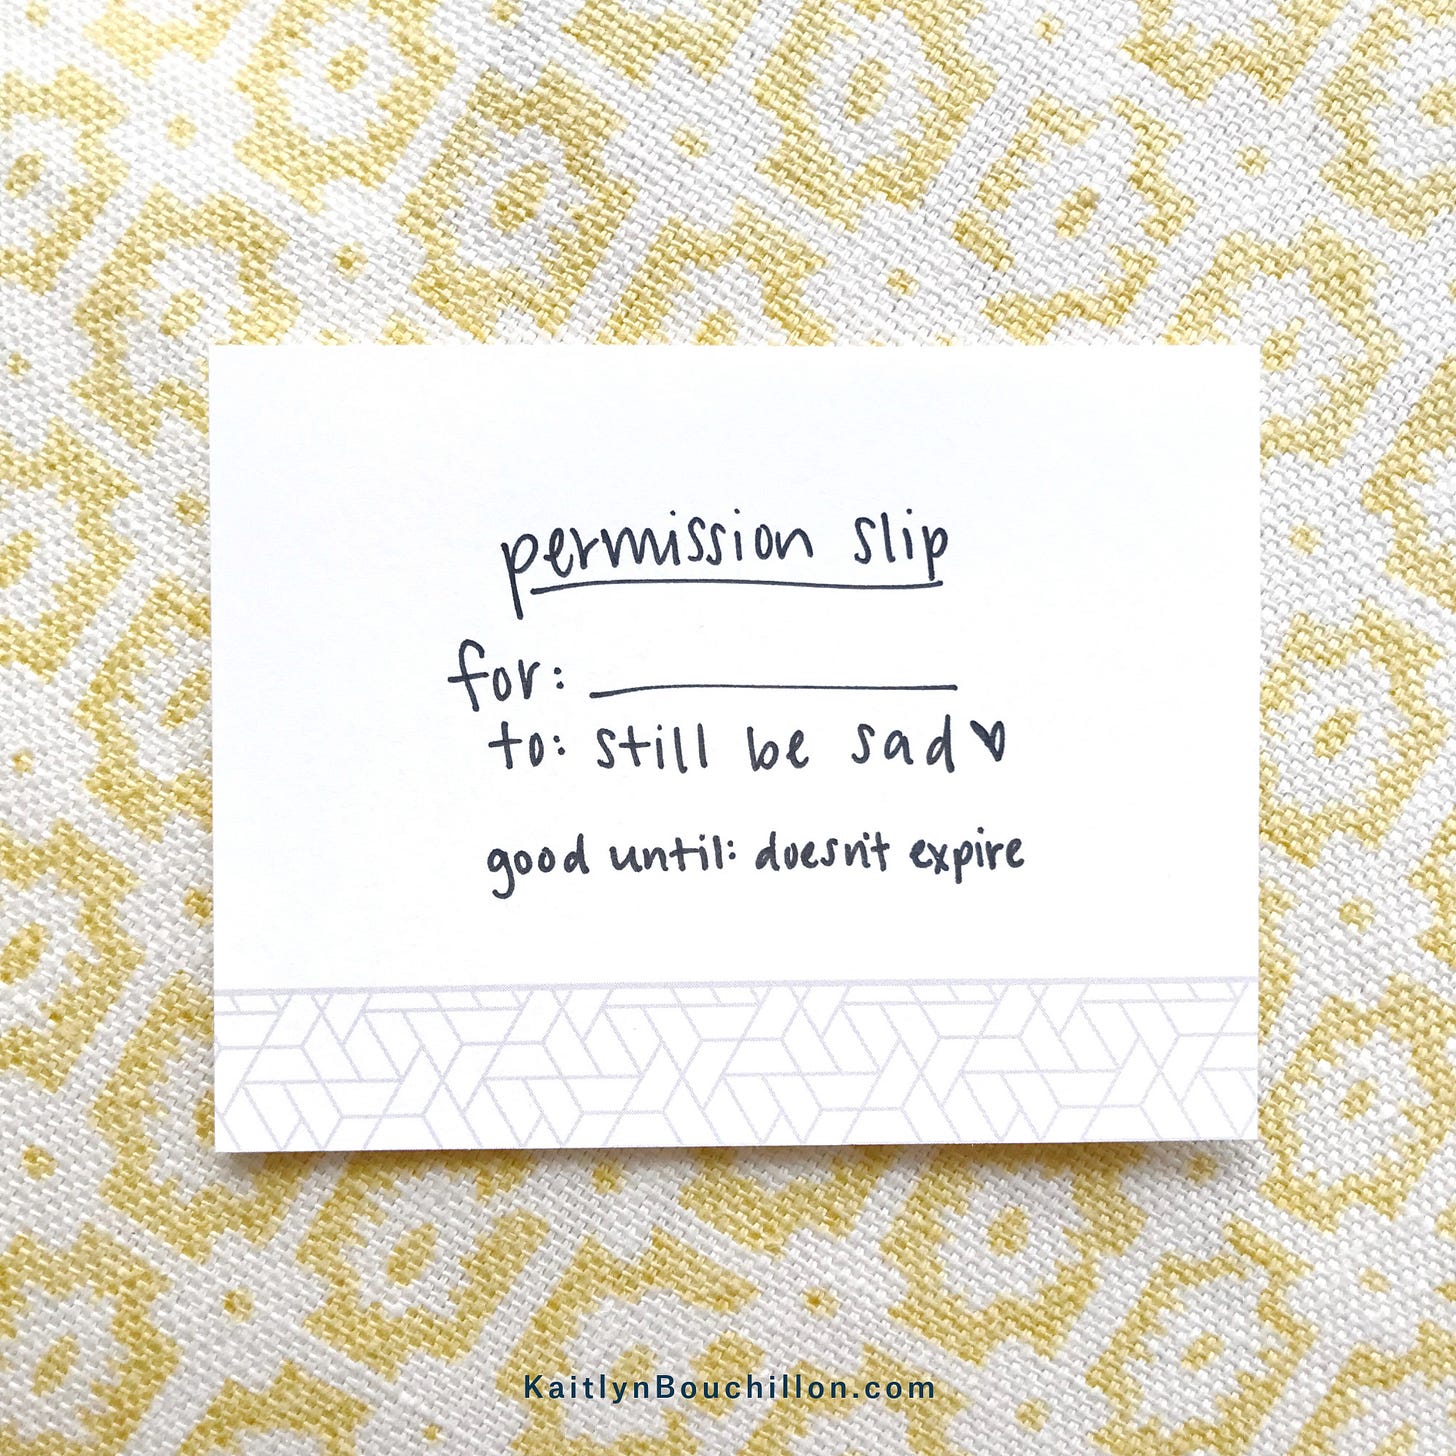 permission slip
for: ________
to: still be sad ♥
good until: doesn't expire
KaitlynBouchillon.com